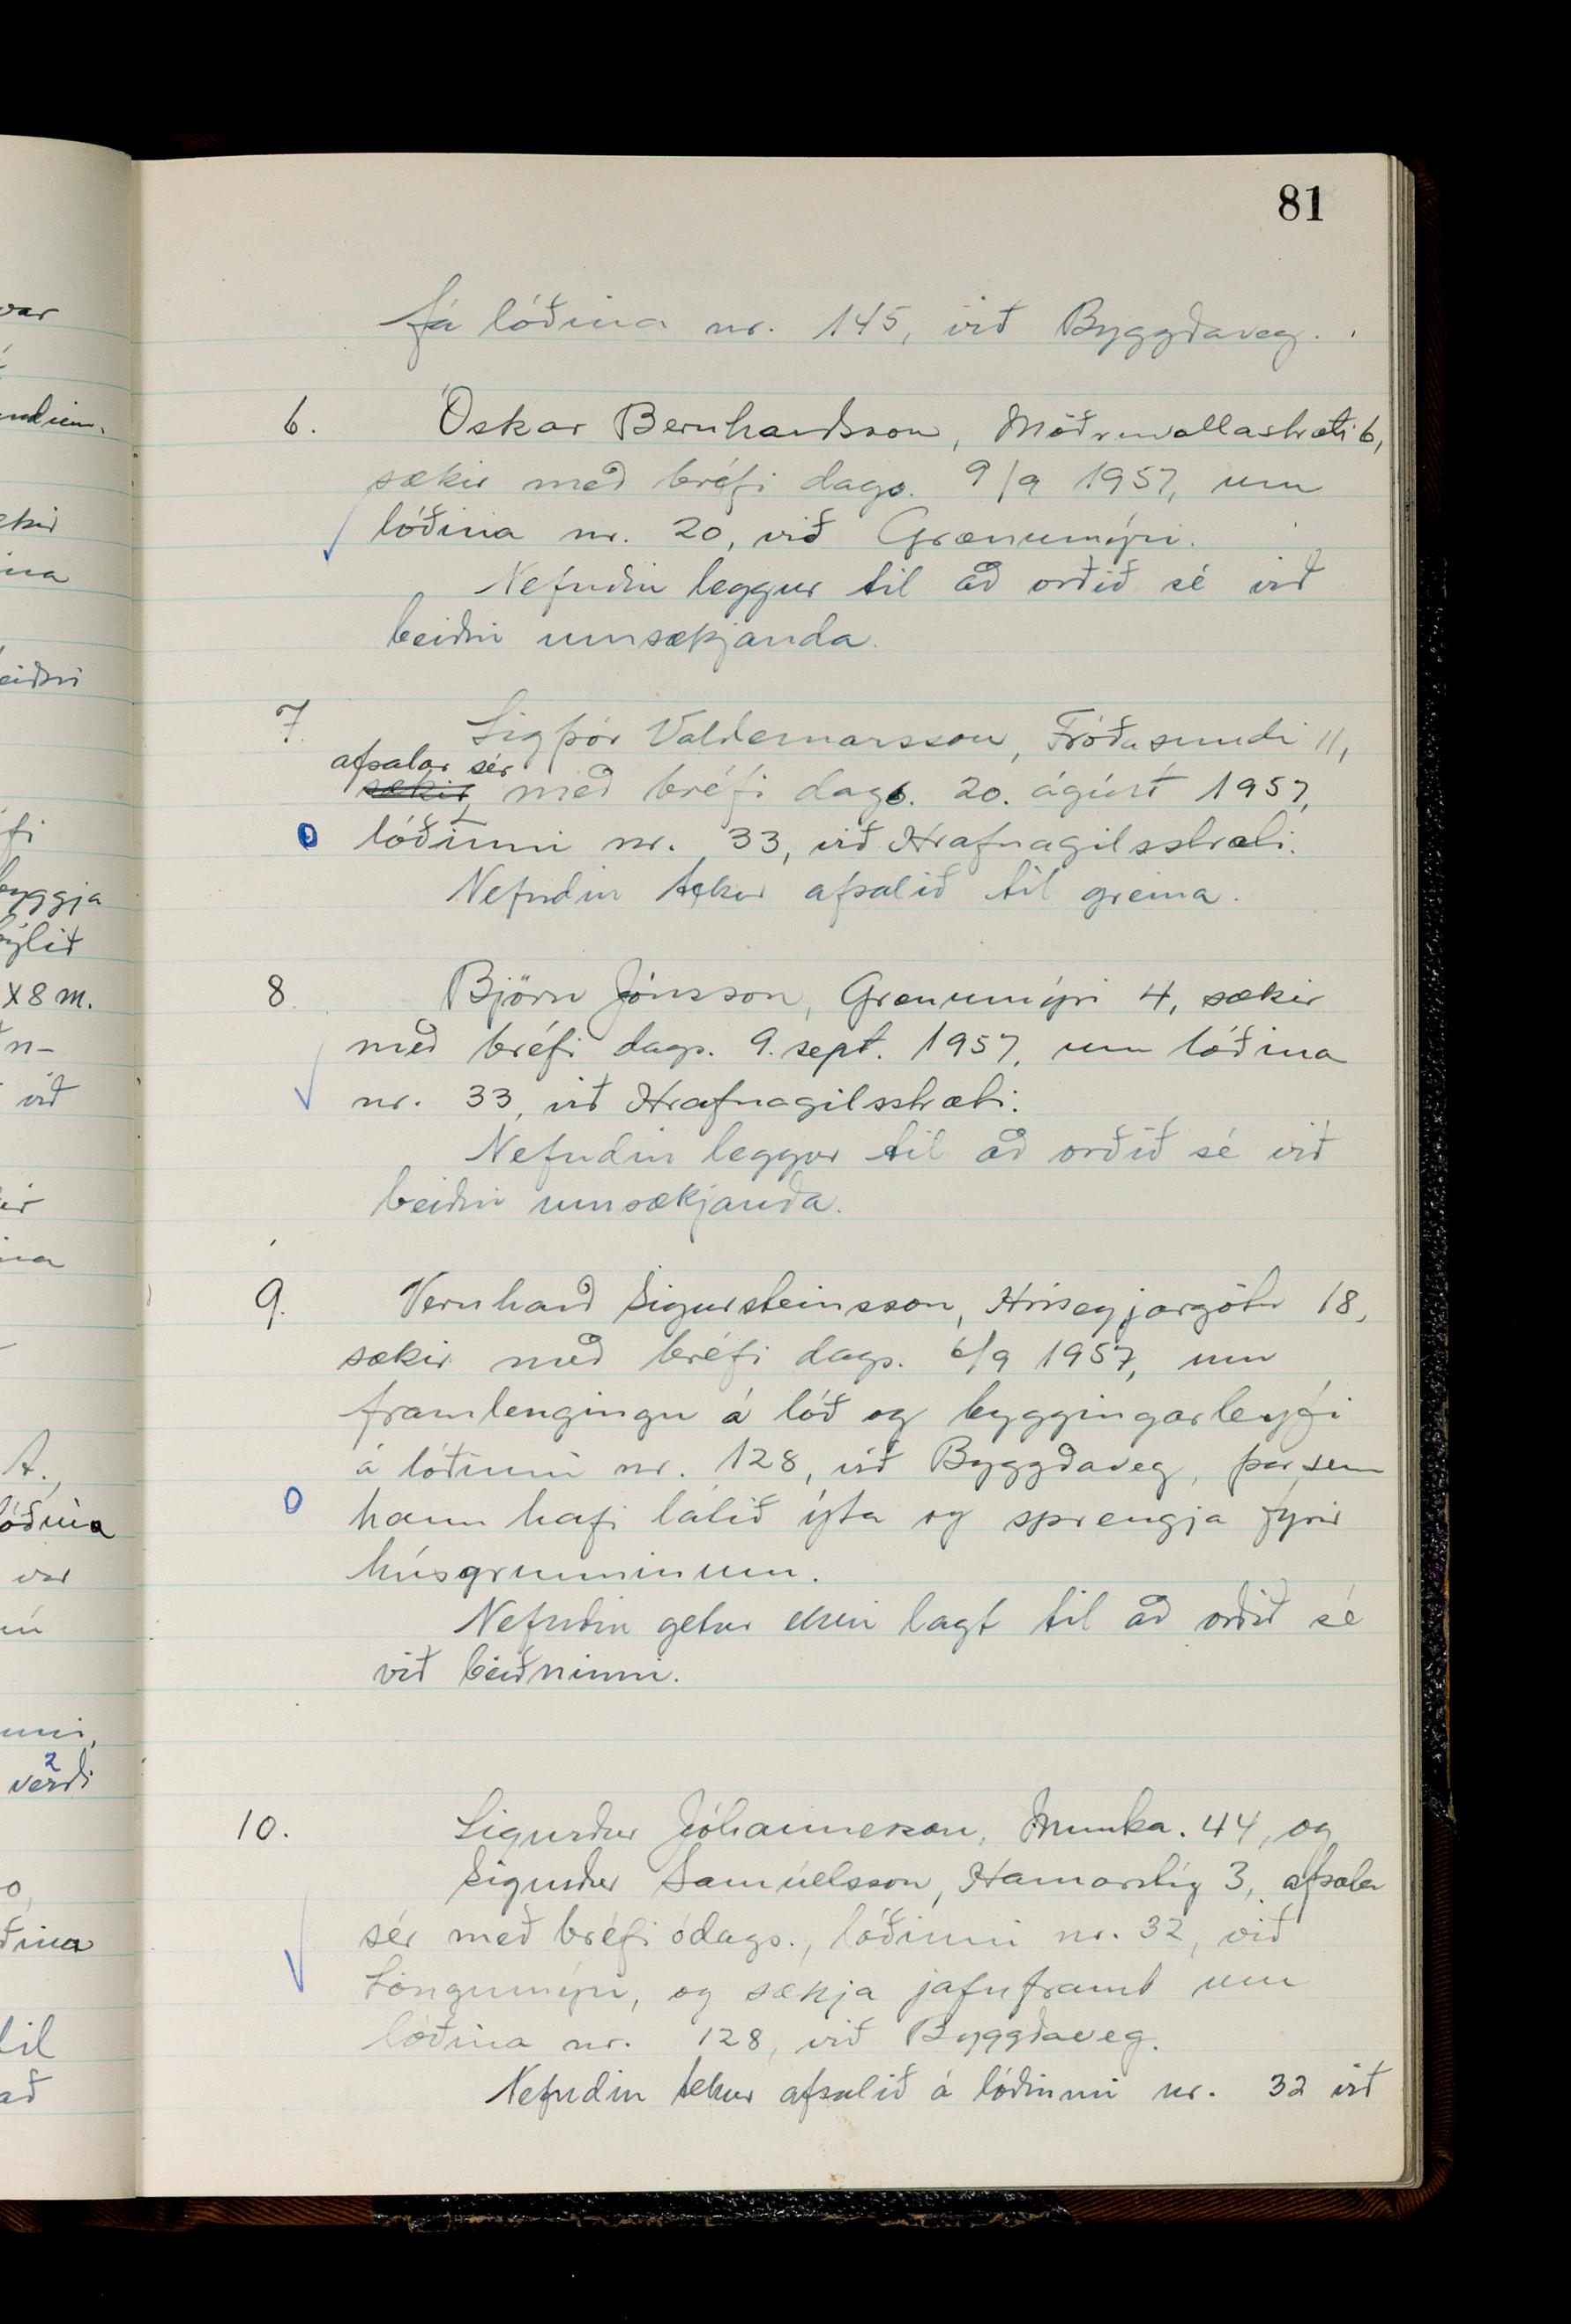 81
fá lóðina nr. 145, við Byggðaveg.
6. Óskar Bernharðsson, Möðruvallastræti 6,
sækir með bréfi dags. 9/9 1957, um
lóðina nr. 20, við Grænumýri.
Nefndin leggur til að orðið sé við
beiðni umsækjanda.
7. Sigþór Valdemarsson, Fróðasundi 11,
afsalar sér
sækir, með bréfi dags. 20. ágúst 1957,
lóðinni nr. 33, við Hrafnagilsstræti.
Nefndin tekur afsalið til greina.
8 Björn Jónsson, Grænumýri 4, sækir
með bréfi dags. 9. sept. 1957, um lóðina
nr. 33, við Hrafnagilsstræti.
Nefndin leggur til að orðið sé við
beiðni umsækjanda.
9. Vernharð Sigursteinsson, Hríseyjargötu 18,
sækir með bréfi dags. 6/9 1957, um
framlengingu á lóð og byggingarleyfi
á lóðinni nr. 128, við Byggðaveg, þar sem
hann hafi látið ýta og sprengja fyrir
húsgrunninum.
Nefndin getur ekki lagt til að orðið sé
við beiðninni.
10. Sigurður Jóhannesson, Munka. 44, og
Sigurður Samúelsson, Hamarstíg 3, afsala
sér með bréfi ódags., lóðinni nr. 32, við
Löngumýri, og sækja jafnframt um
lóðina nr. 128, við Byggðaveg.
Nefndin tekur afsalið á lóðinni nr. 32 við